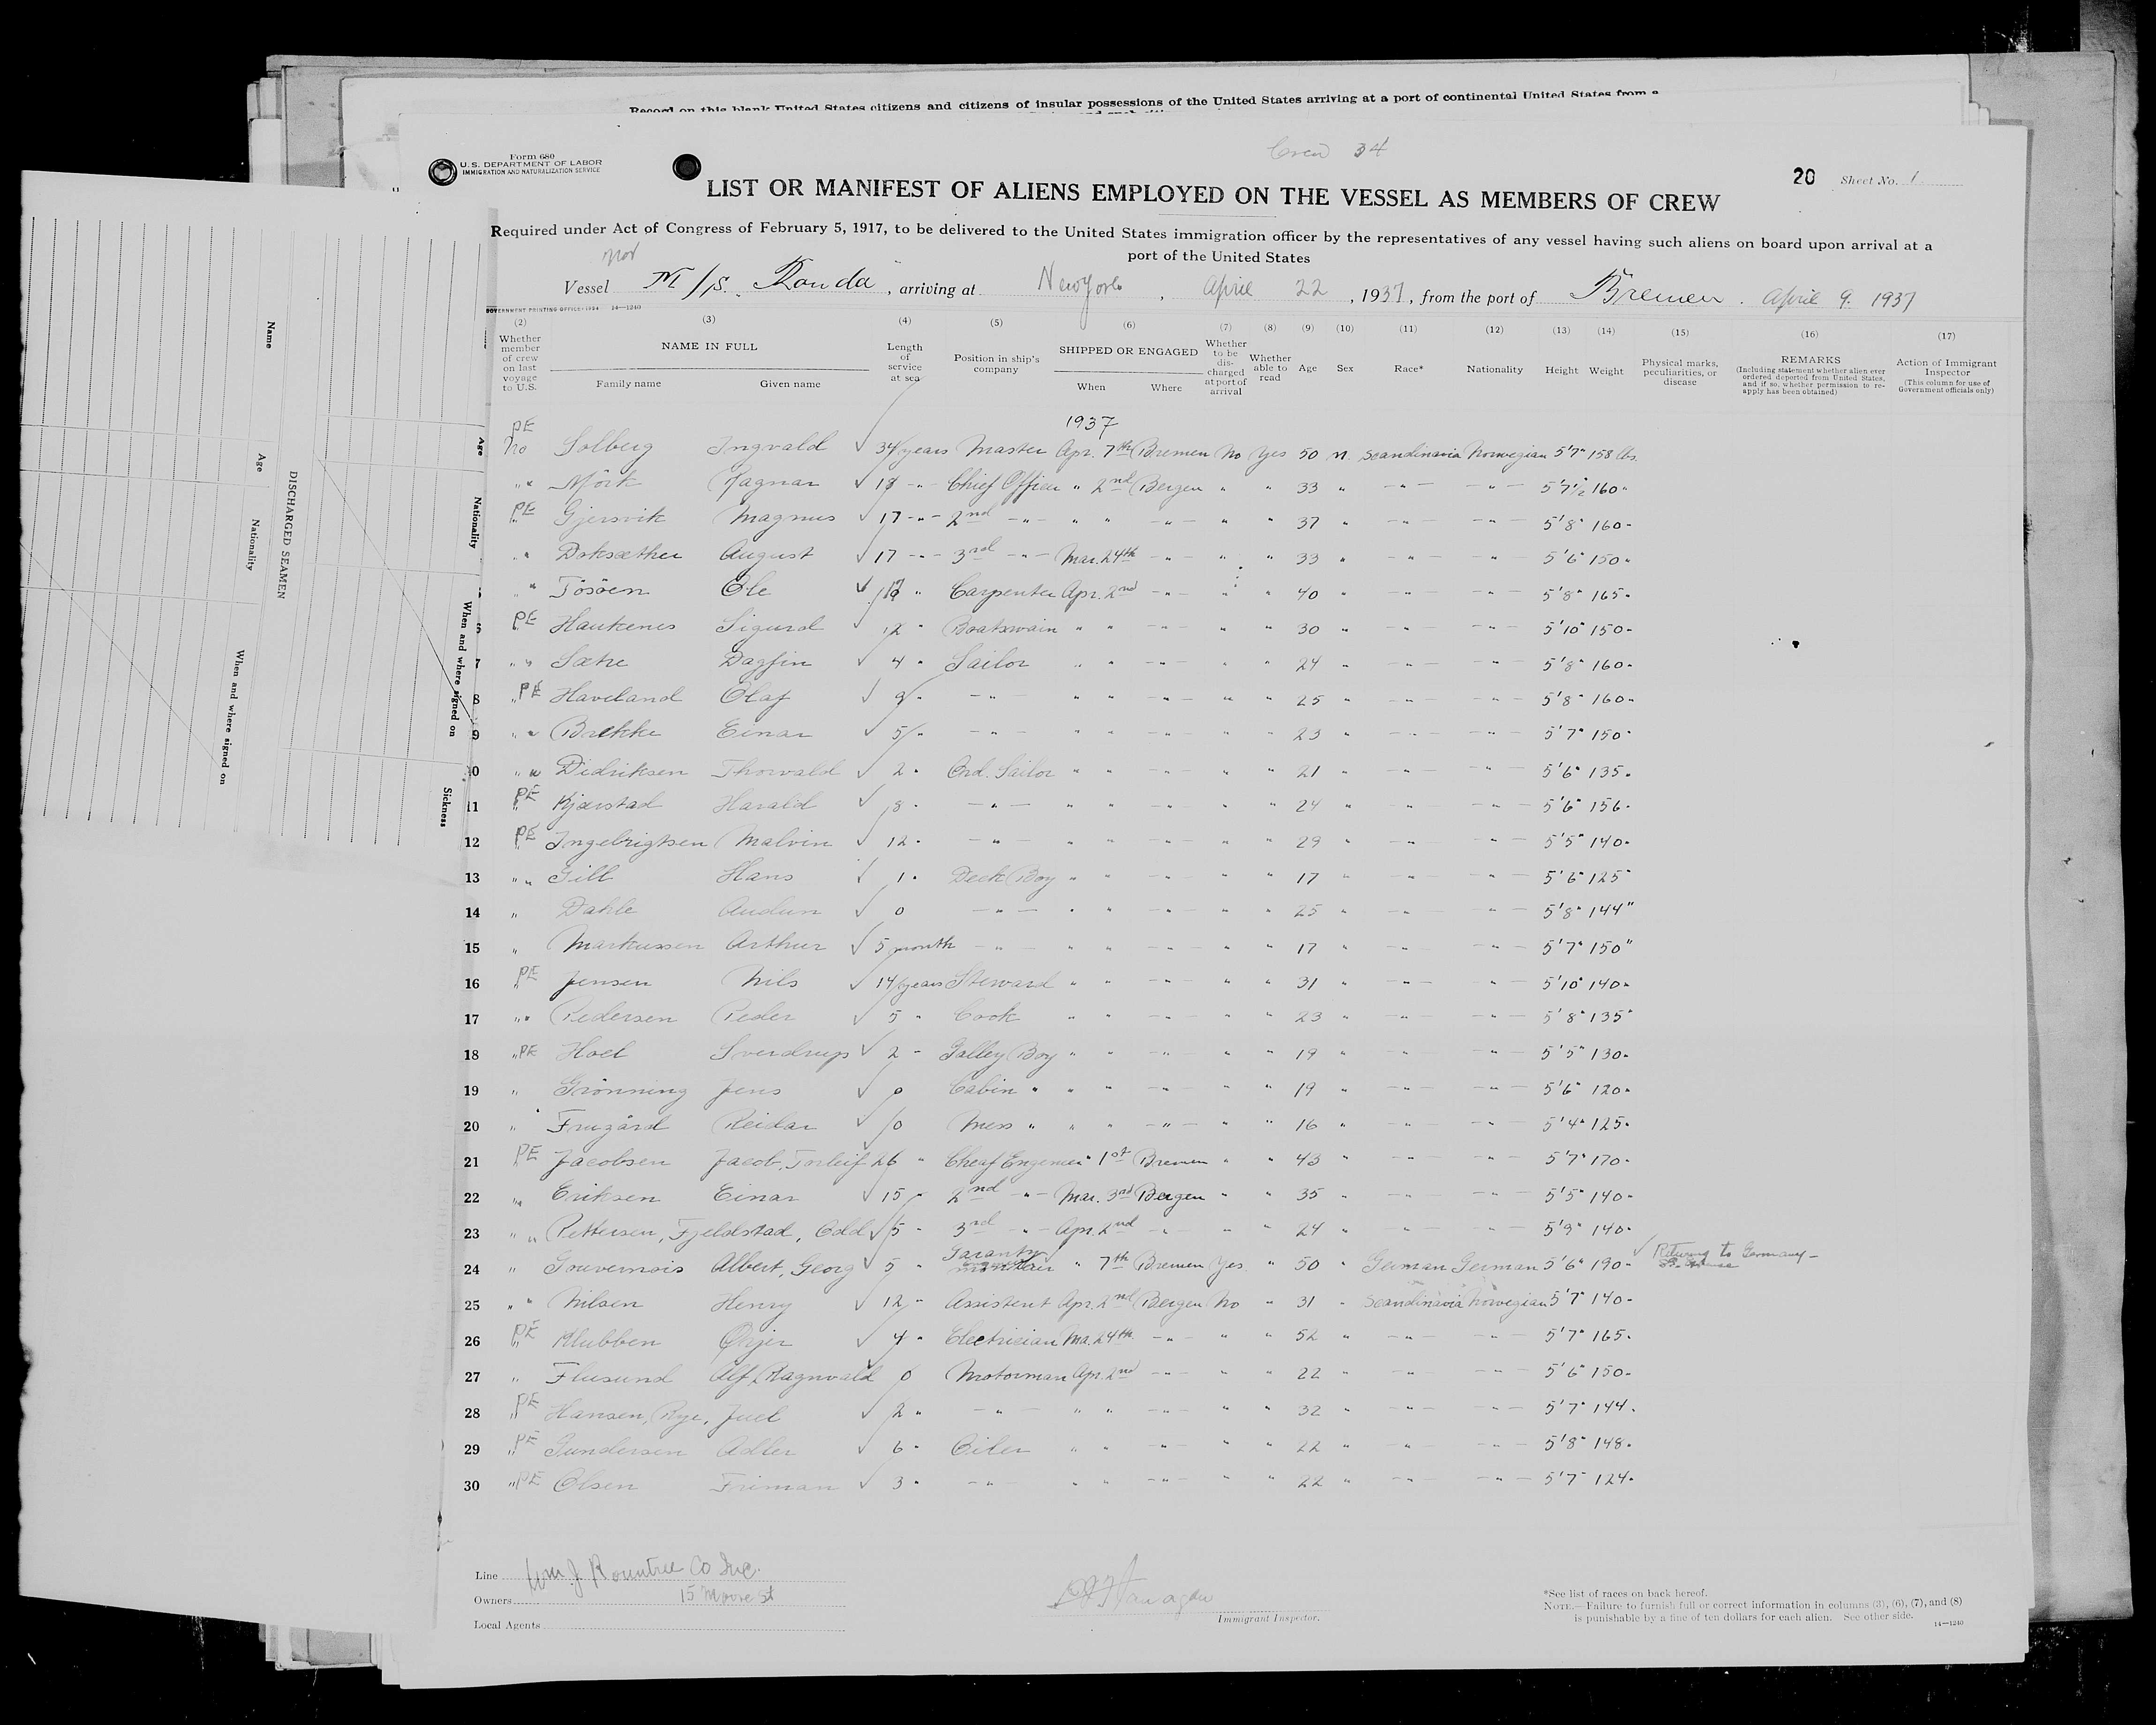 Record on this blank United States citizens and citizens of insular possessions of the United States arriving at a port of continental United States from a
Crew 34
Form 680
U.S. DEPARTMENT OF LABOR
IMMIGRATION AND NATURALIZATION SERVICE
20 Sheet No. 1
LIST OR MANIFEST OF ALIENS EMPLOYED ON THE VESSEL AS MEMBERS OF CREW
Required under Act of Congress of February 5, 1917, to be delivered to the United States immigration officer by the representatives of any vessel having such aliens on board upon arrival at a
port of the United States
nor
Vessel M/S. "Ronda", arriving at New York, April 22, 1937, from the port of Bremen. April 9. 1937
GOVERNMENT PRINTING OFFICE: 1934 14—1240
(2) (3) (4) (5) (6) (7) (8) (9) (10) (11) (12) (13) (14) (15) (16) (17)
Whether member of crew on last voyage to U.S.
NAME IN FULL
Family name Given name
Length of service at sea
Position in ship's company
SHIPPED OR ENGAGED
When Where
Whether to be discharged at port of arrival
Whether able to read
Age
Sex
Race*
Nationality
Height
Weight
Physical marks, peculiarities, or disease
REMARKS
(Including statement whether alien ever ordered deported from United States, and if so, whether permission to re-apply has been obtained)
Action of Immigrant Inspector
(This column for use of Government officials only)
PE 1937
No Solberg Ingvald √ 34 years Master Apr. 7th Bremen No Yes 50 m. Scandinavia Norwegian 5'7" 158 lbs.
" " Mörk Ragnar √ 18 -"- Chief Officer " 2nd Bergen " " 33 " -"- -"- 5'7½" 160 "
PE " Gjersvik Magnus √ 17 -"- 2nd -"- " " -"- " " 37 " -"- -"- 5'8" 160 -
" " Doksæther August √ 17 -"- 3rd -"- Mar. 24th -"- " " 33 " -"- " 5'6" 150 "
" " Tösöen Ole √ " Carpenter Apr. 2nd -"- " " 40 " -"- -"- 5'8" 165 "
PE " Haukenes Sigurd √ 12 " Boatswain " " -"- " " 30 " -"- -"- 5'10" 150 -
7 " " Sætre Dagfin √ 4 " Sailor " " -"- " " 24 " -"- -"- 5'8" 160 -
8 " PE Haveland Olaf √ 9 " -"- " " -"- " " 25 " -"- -"- 5'8" 160 -
9 " " Brekke Einar √ 5 " -"- " " -"- " " 23 " -"- -"- 5'7" 150 "
10 " " Didriksen Thorvald √ 2 " Ord. Sailor " " -"- " " 21 " -"- -"- 5'6" 135 "
11 PE " Kjærstad Harald √ 8 " -"- " " -"- " " 24 " -"- -"- 5'6" 156 "
12 PE " Ingebrigtsen Malvin √ 12 " -"- " " -"- " " 29 " -"- -"- 5'5" 140 "
13 " " Gill Hans √ 1 " Deck Boy " " -"- " " 17 " -"- -"- 5'6" 125 "
14 " Dahle Audun √ 0 -"- " " -"- " " 25 " -"- -"- 5'8" 144 "
15 " Markussen Arthur √ 5 month -"- " " -"- " " 17 " -"- -"- 5'7" 150 "
16 PE " Jensen Nils √ 14 years Steward " " -"- " " 31 " -"- " 5'10" 140 "
17 " " Pedersen Peder √ 5 " Cook " " -"- " " 23 " -"- -"- 5'8" 135 "
18 " PE Hoel Sverdrup √ 2 - Galley Boy " " -"- " " 19 " -"- -"- 5'5" 130 -
19 " Grönning Jens √ 0 Cabin " " " -"- " " 19 " -"- -"- 5'6" 120 "
20 " Reidar √ 0 Mess " " " -"- " " 16 " -"- -"- 5'4" 125 "
21 PE " Jacobsen Jacob, Torleif 26 " Cheaf Engeneer " 1st Bremen " " 43 " -"- -"- 5'7" 170 -
22 " " Eriksen Einar √ 15 " 2nd -"- Mar. 3rd Bergen " " 35 " -"- -"- 5'5" 140 -
23 " " Pettersen, Fjeldstad, Odd √ 5 - 3rd -"- Apr. 2nd -"- " " 24 " -"- -"- 5'9" 140 -
24 " Gouvernois Albert, Georg √ 5 " Garanty " 7th Bremen Yes " 50 " German German 5'6" 190 - √ Returning to Germany -
25 " " Nilsen Henry √ 12 " Assistent Apr. 2nd Bergen No " 31 " Scandinavia Norwegian 5'7" 140 -
26 PE " Klubben √ 4 " Electrician Ma. 24th -"- " " 52 " -"- -"- 5'7" 165 "
27 " Flusund Alf, Ragnvald 0 Motorman Apr. 2nd -"- " " 22 " -"- -"- 5'6" 150 -
28 PE " Hansen, Rye, Juel √ 2 " -"- " " -"- " " 32 " -"- -"- 5'7" 144 "
29 PE " Gundersen Adler √ 6 " Oiler " " -"- " " 22 " -"- -"- 5'8" 148 "
30 " PE Olsen Friman √ 3 " -"- " " -"- " " 22 " -"- -"- 5'7" 124 "
Line Wm. J. Rountree Co Inc.
Owners 15 Moore St
Local Agents
Immigrant Inspector.
*See list of races on back hereof.
NOTE.—Failure to furnish full or correct information in columns (3), (6), (7), and (8)
is punishable by a fine of ten dollars for each alien. See other side.
14—1240
DISCHARGED SEAMEN
Name
Age
Nationality
When and where signed on
Age
Nationality
When and where signed on
Sickness